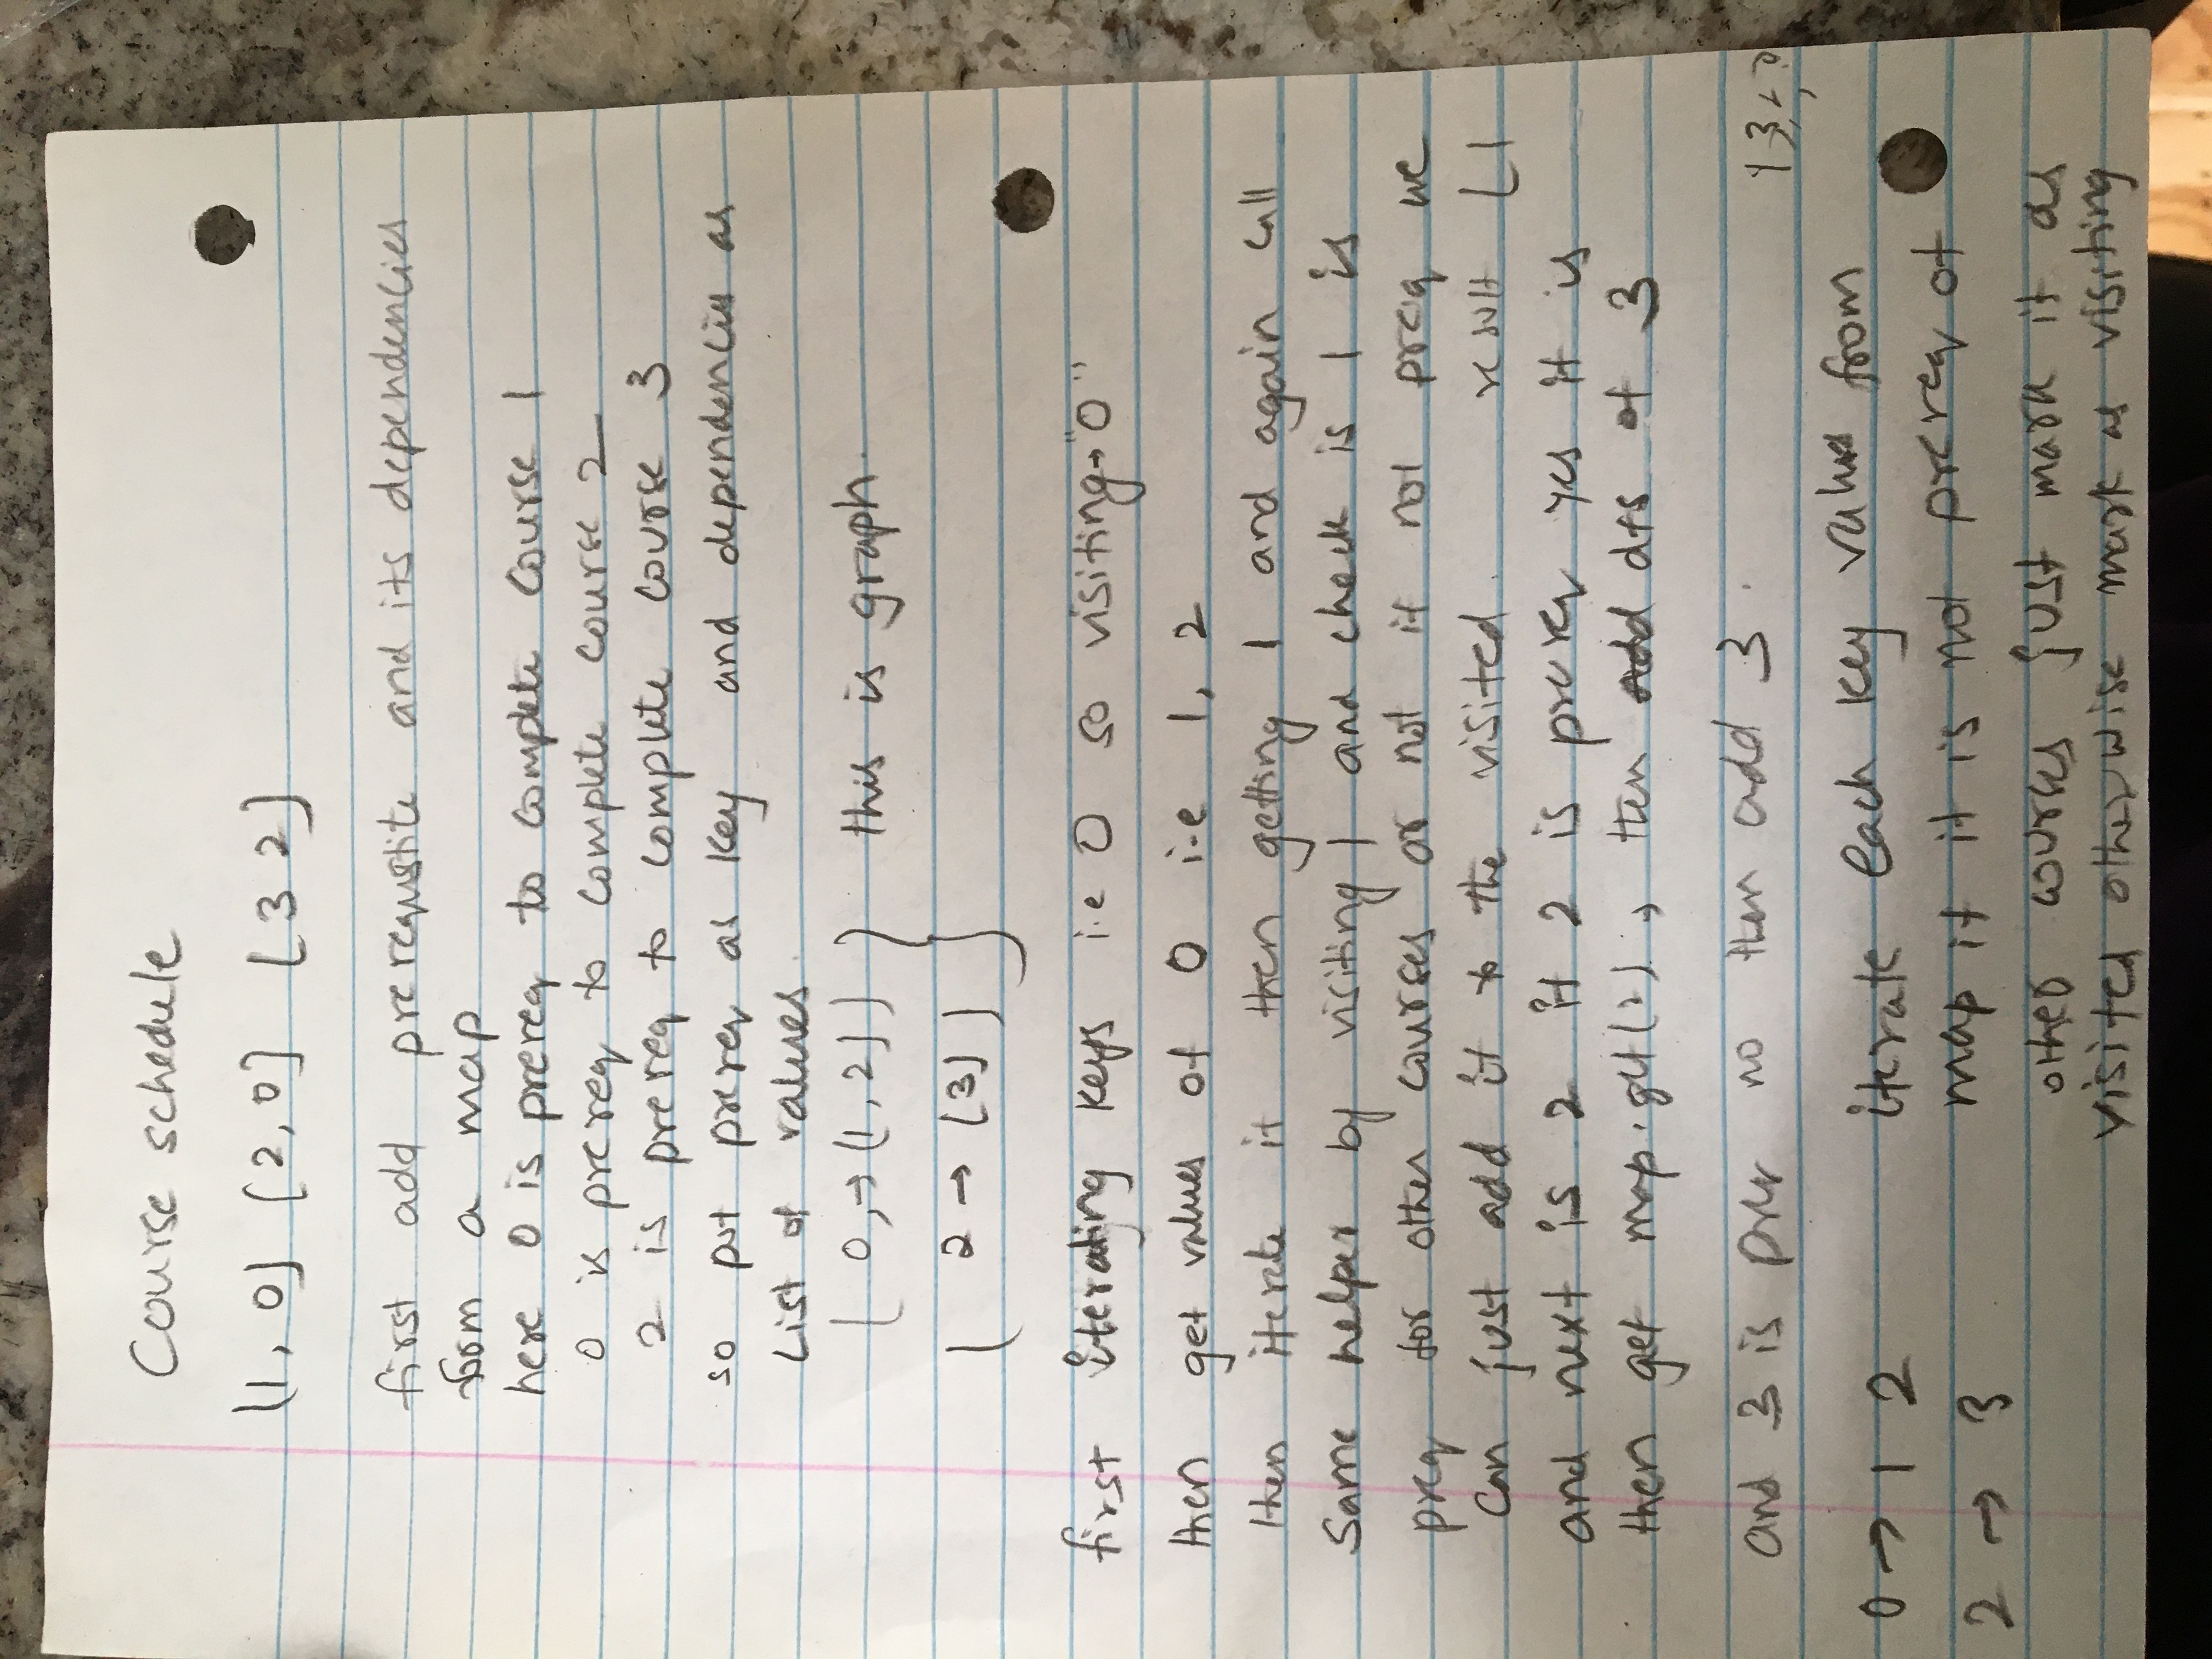 Course schedule
[1, 0] [2, 0] [3 2]
first add prerequstite and its dependencies
form a map
here 0 is prereq to complete course 1
0 is prereq to complete course 2
2 is prereq to complete course 3
so put prereq as key and dependencies as
List of values.
( 0, → (1, 2] ) } this is graph.
( 2 → [3] )
first iterating keys i.e 0 so visiting → "0"
then get values of 0 i.e 1, 2
then iterate it then getting 1 and again call
Same helper by visiting 1 and check is 1 is
preq for other courses or not if not preq we
can just add it to the visited. result [1
and next is 2 if 2 is prereq yes it is
then get map.get(2), then add dfs of 3
and 3 is prer no then add 3.
1 3, 2, 0
0 → 1 2 iterate each key values from
2 → 3 map if it is not prereq of
other courses just mark it as
visited otherwise mark as visiting